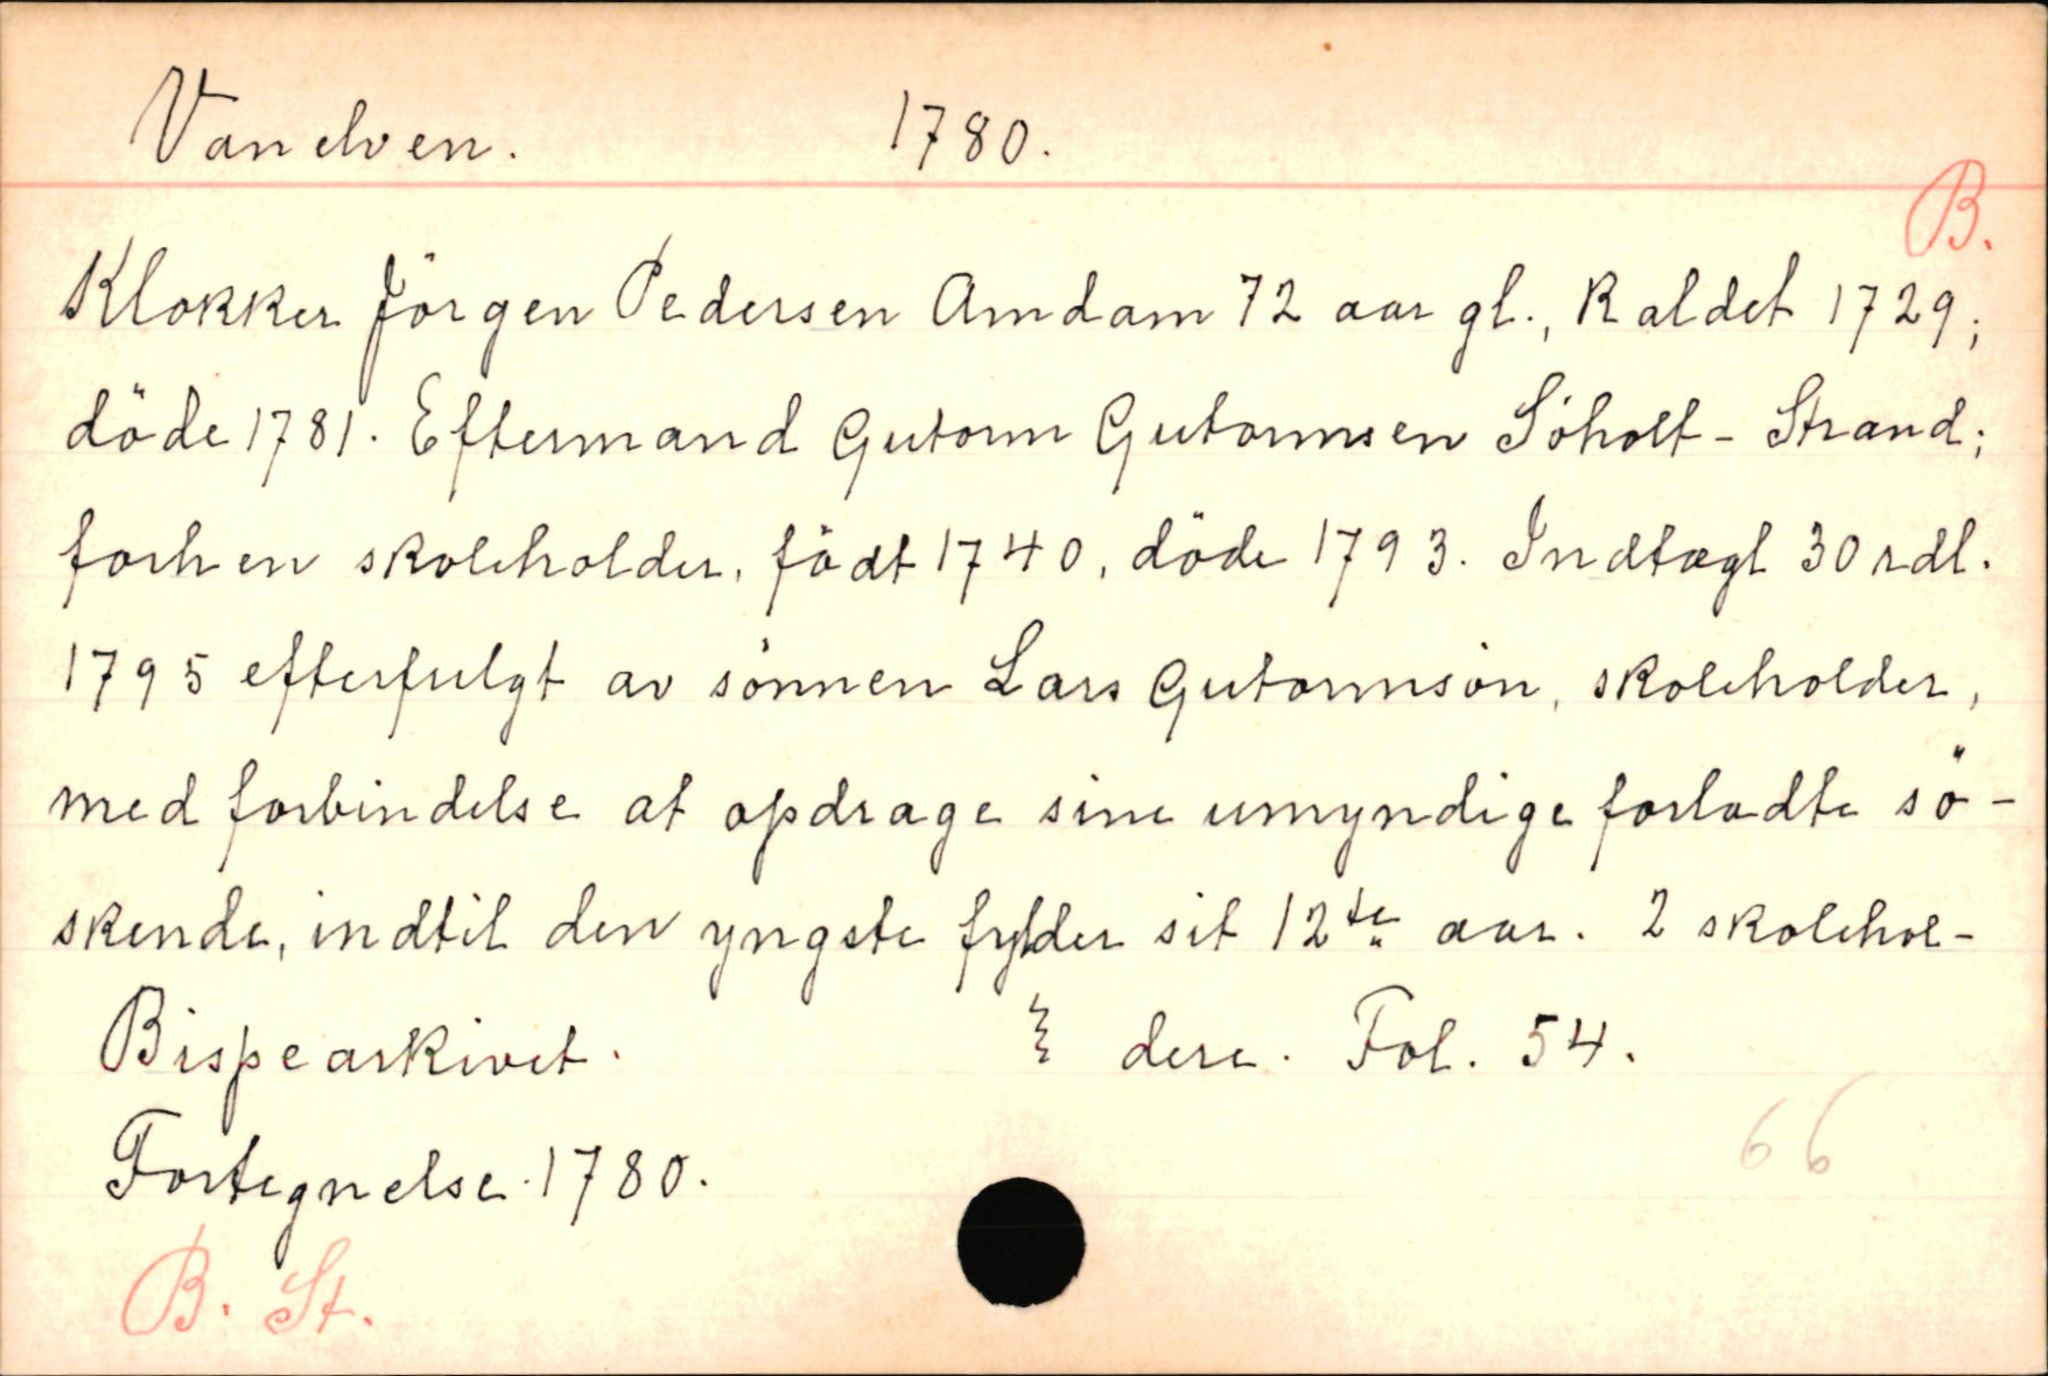 Vanelven. 1780.
B.
Klokker Jörgen Pedersen Amdam 72 aar gl., kaldet 1729;
döde 1781. Eftermand Gutorm Gutormsen Söholt - Strand;
forhen skoleholder, födt 1740, döde 1793. Indtægt 30 rdl.
1795 efterfulgt av sönnen Lars Gutormsön, skoleholder,
med forbindelse at opdrage sine umyndige forladte sö-
skende, indtil den yngste fylder sit 12te aar. 2 skolehol-
Bispearkivet. dere. Fol. 54.
66
Fortegnelse 1780.
B. St.